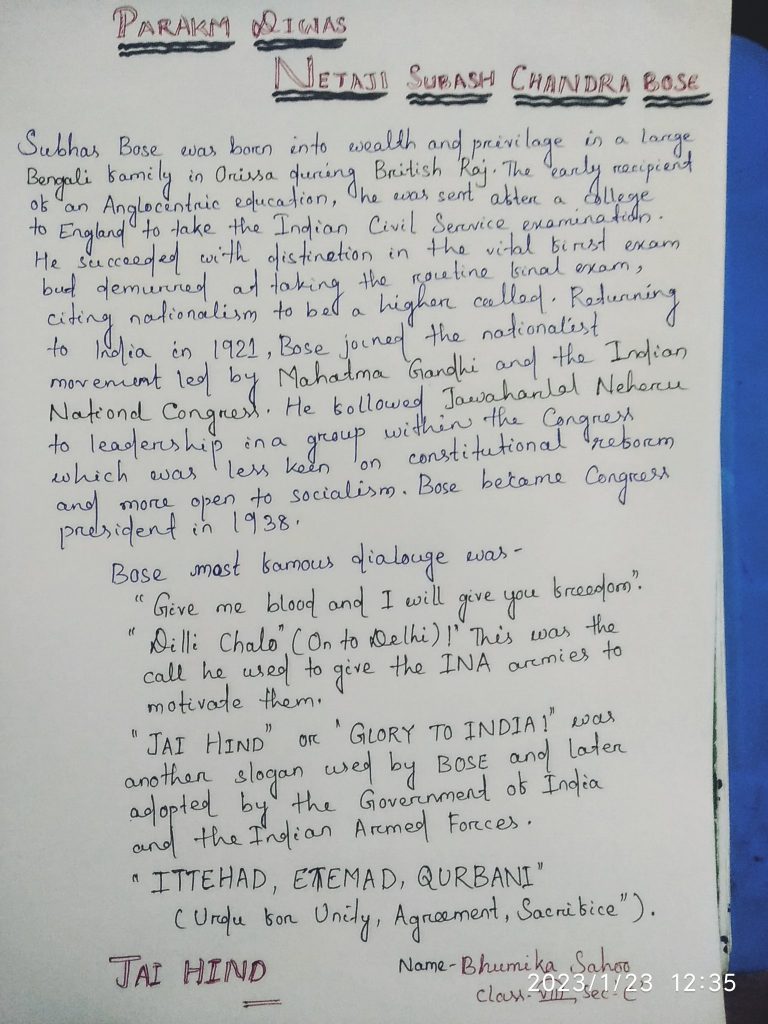 PARAKM DIWAS
NETAJI SUBASH CHANDRA BOSE
Subhas Bose was born into wealth and privilage in a large
Bengali family in Orissa during British Raj. The early recipient
of an Anglocentric education, he was sent after a college
to England to take the Indian Civil Service examination.
He succeeded with distinction in the vital first exam
but demurred at taking the routine final exam,
citing nationalism to be a higher called. Returning
to India in 1921, Bose joined the nationalist
movement led by Mahatma Gandhi and the Indian
National Congress. He followed Jawaharlal Neheru
to leadership in a group within the Congress
which was less keen on constitutional reform
and more open to socialism. Bose became Congress
president in 1938.
Bose most famous dialouge was-
"Give me blood and I will give you freedom".
"Dilli Chalo" (On to Delhi)!" This was the
call he used to give the INA armies to
motivate them.
"JAI HIND" or "GLORY TO INDIA!" was
another slogan used by BOSE and later
adopted by the Government of India
and the Indian Armed Forces.
"ITTEHAD, ETEMAD, QURBANI"
(Urdu for Unity, Agreement, Sacrifice").
JAI HIND
Name-Bhumika Sahoo
2023/1/23 12:35
Class-VIII, Sec-C